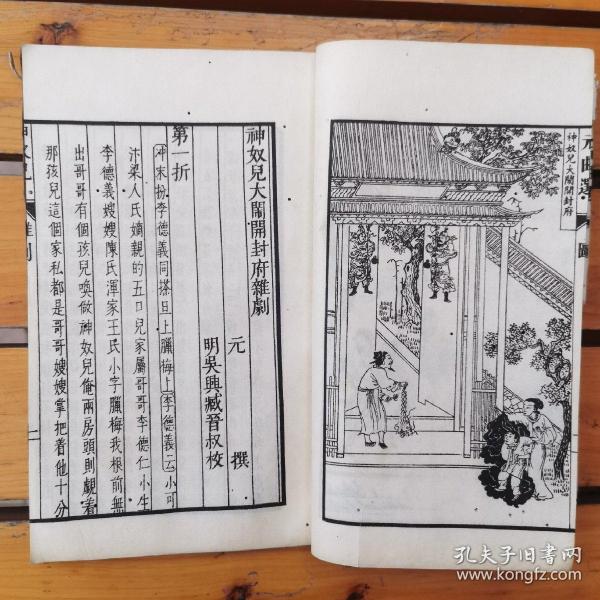 元曲選
圖
神奴兒大鬧開封府
神奴兒大鬧開封府雜劇
元 撰
明吳興臧晉叔校
第一折
沖末扮李德義同搽旦上臘梅上李德義云小可
汴梁人氏嫡親的五口兒家屬哥哥李德仁小生
李德義嫂嫂陳氏渾家王氏小字臘梅我根前無
出哥哥有個孩兒喚做神奴兒俺兩房頭則覷着
那孩兒這個家私都是哥哥嫂嫂掌把着他十分
神奴兒
雜劇
一
孔夫子旧書网
www.kongfz.com